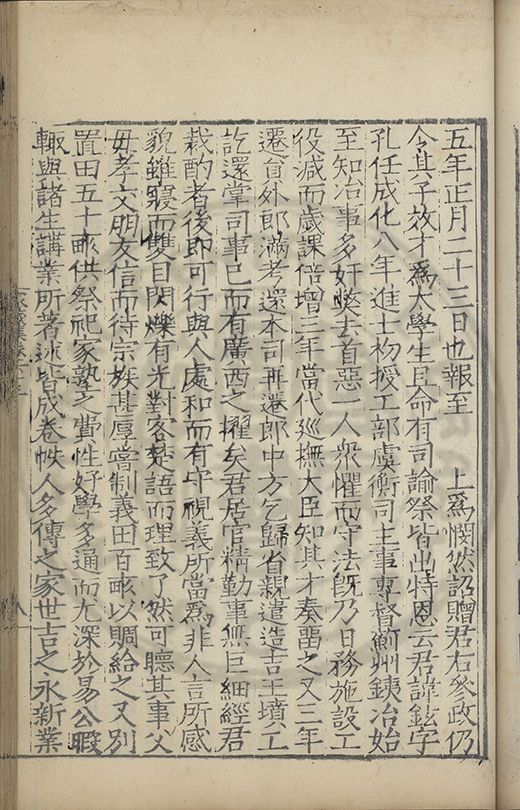 五年正月二十三日也報至　上為憫然詔贈君右參政仍
令其子效才為大學生且命有司諭祭皆出特恩云君諱鉉字
孔任成化八年進士初授工部虞衡司主事專督薊州鐵冶始
至知冶事多奸弊去首惡一人衆懼而守法旣乃日務施設工
役減而歲課倍增三年當代廵撫大臣知其才奏留之又三年
遷員外郎滿考還本司再遷郎中方乞歸省親遣造吉王墳工
訖還掌司事已而有廣西之擢矣君居官精勤事無巨細經君
裁酌者後即可行與人處和而有守視義所當為非人言所感
貌雖寢而雙目閃爍有光對客楚語而理致了然可聽其事父
毋孝交朋友信而待宗族甚厚嘗制義田百畝以賙給之又別
置田五十畝供祭祀家塾之費性好學多通而尤深於易公暇
輙與諸生講業所著述皆成卷帙人多傳之家世吉之永新業